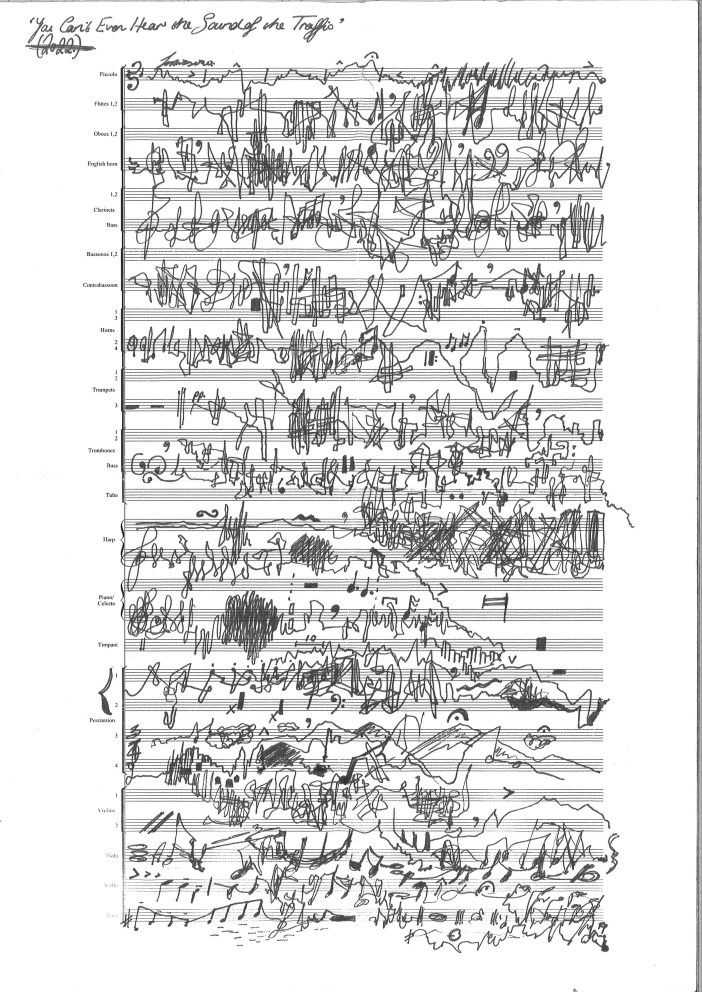 "You Can't Even Hear the Sound of the Traffic"
(2022)
Piccolo
Flutes 1,2
Oboes 1,2
English horn
1,2
Clarinets
Bass
Bassoons 1,2
Contrabassoon
1
3
Horns
2
4
1
2
Trumpets
3
pp.
1
2
Trombones
Bass
Tuba
Harp
Piano/
Celesta
Timpani
1
2
Percussion
3
4
1
Violins
2
Viola
Cello
Bass